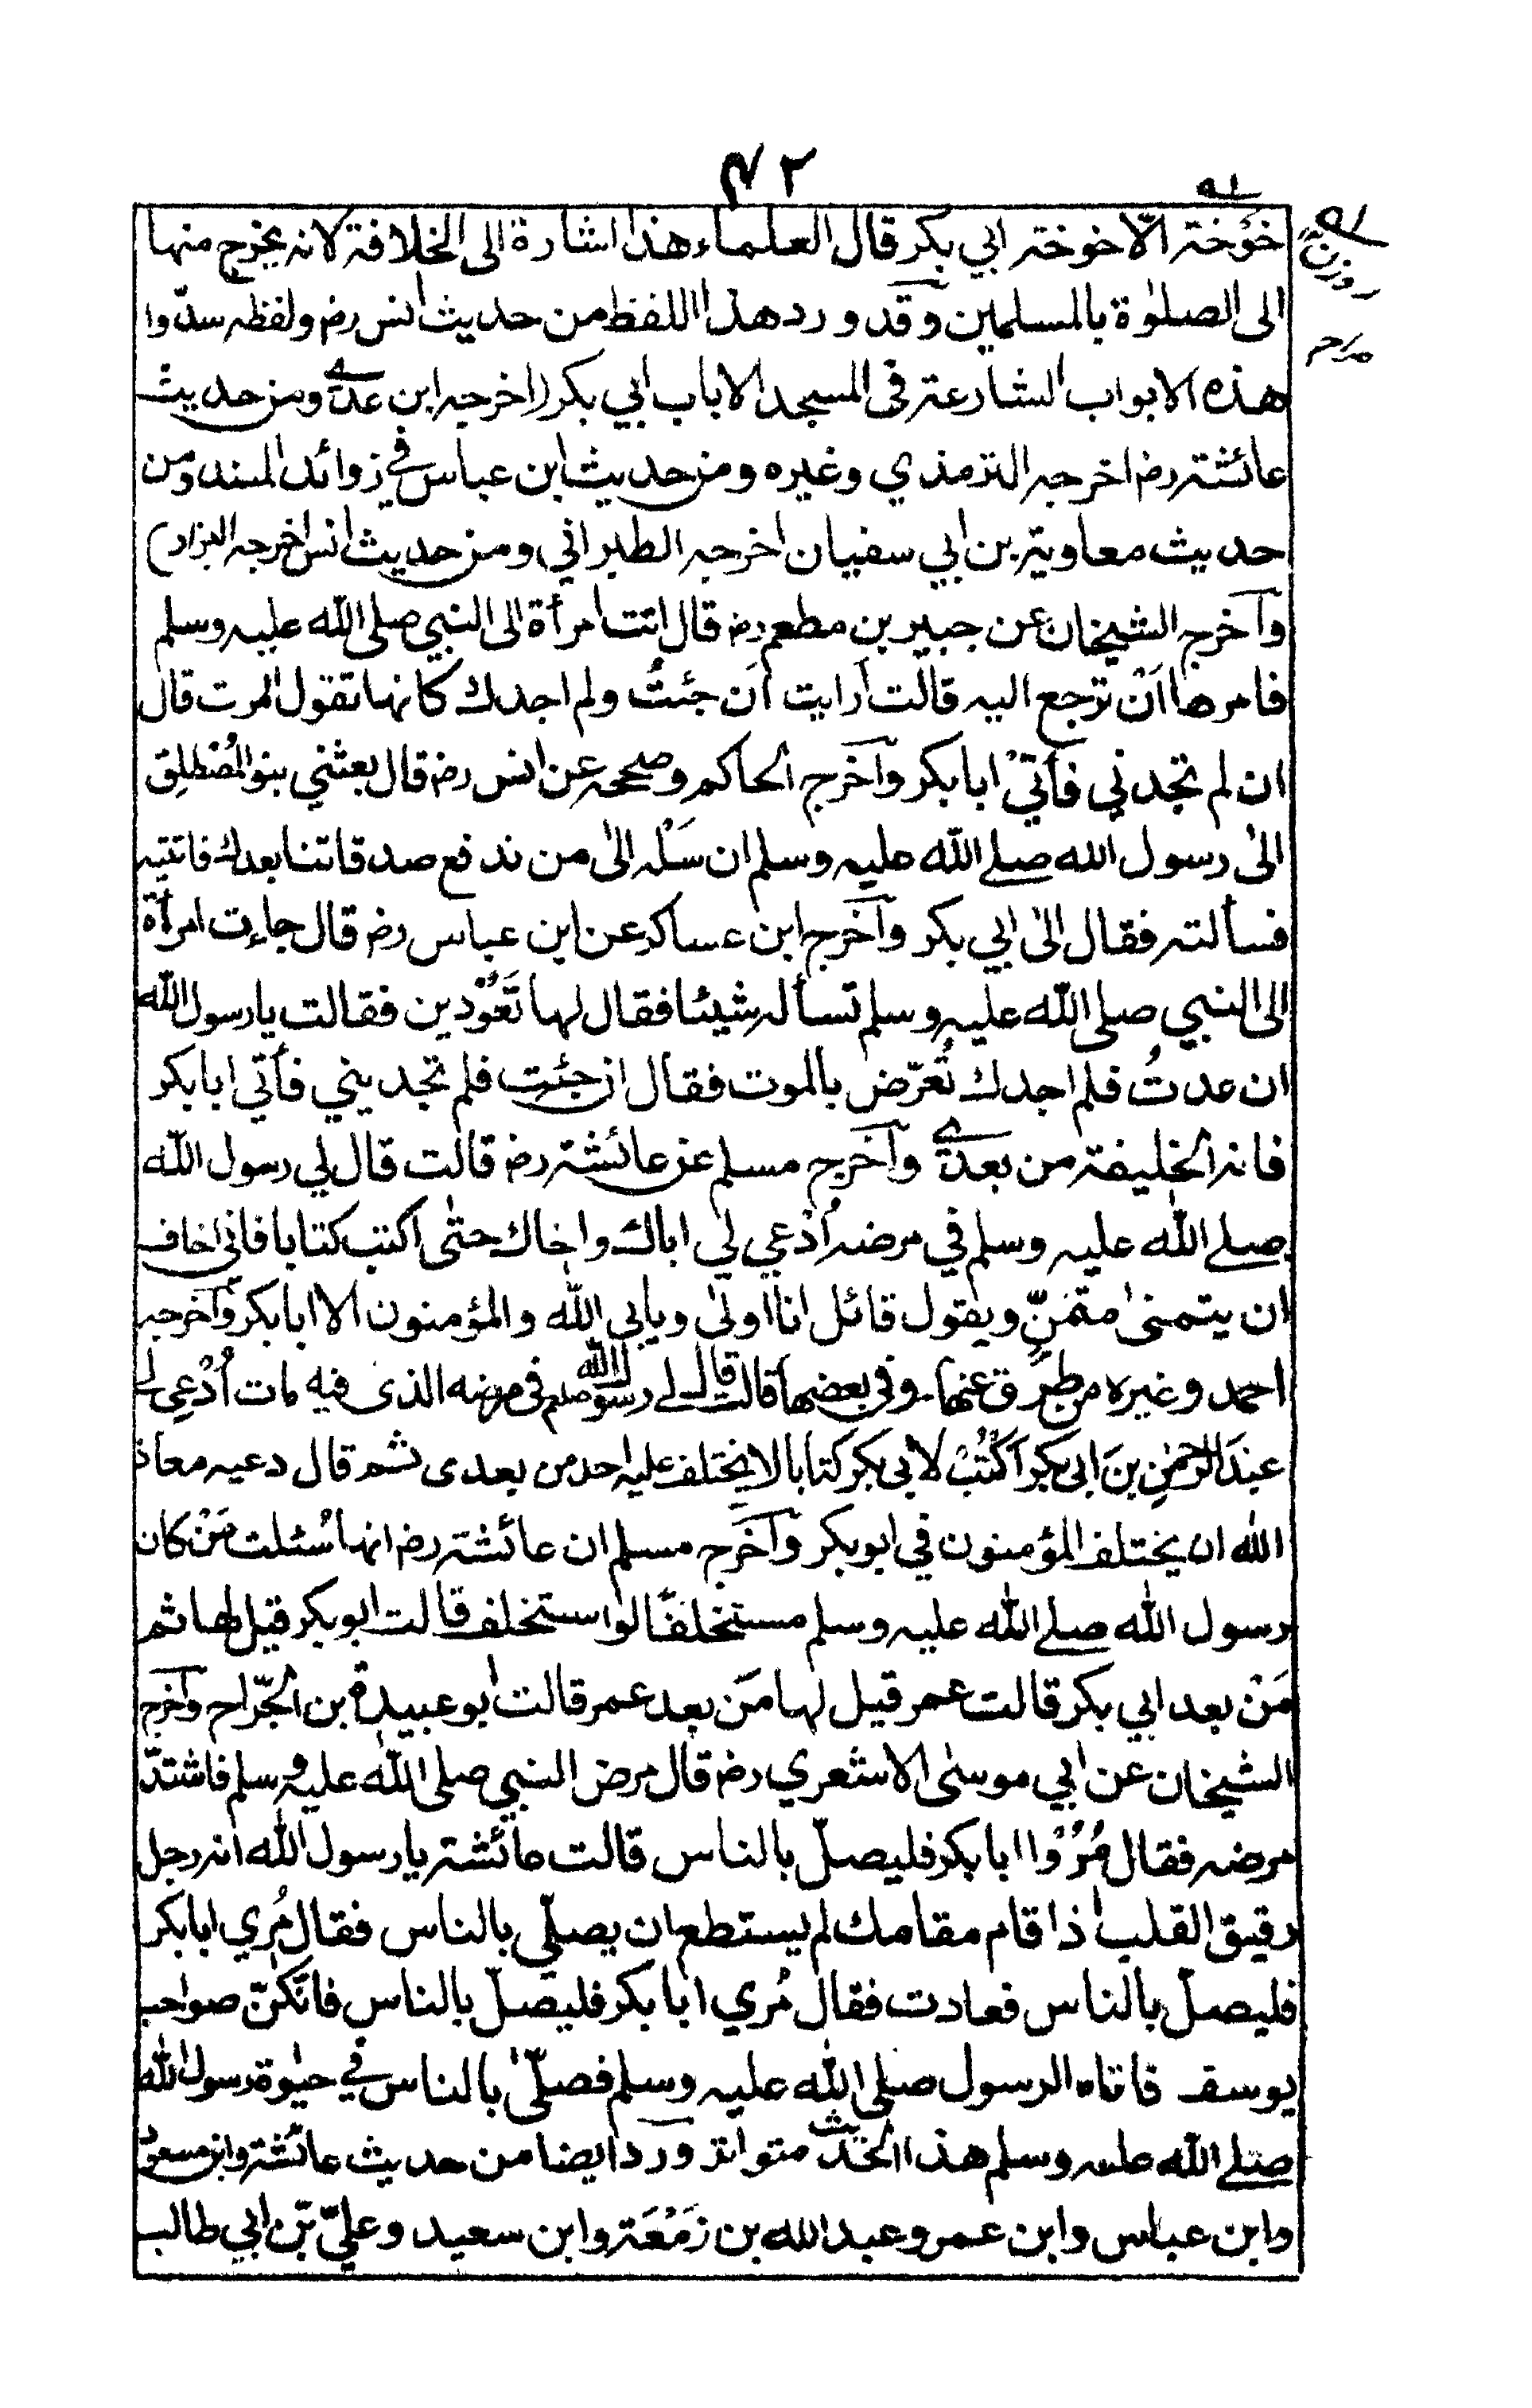 ٤٢
خَوْخة الّا خوخة ابي بكر قال العلماء هذا اشارة الى الخلافة لانه يخرج منها
الى الصلوٰة بالمسلمين وقد ورد هذا اللفظ من حديث انس رض ولفظه سدّوا
هذه الابواب الشارعة فى المسجد الا باب ابي بكر (اخرجه ابن عدي ومن حديث
عائشة رض اخرجه الترمذي وغيره ومن حديث ابن عباس في زوائد المسند ومن
حديث معاوية بن ابي سفيان اخرجه الطبراني ومن حديث انس اخرجه البزار)
وآخرج الشيخان عن جبير بن مطعم رض قال اتت امرأة الى النبي صلى الله عليه وسلم
فامرها اَنْ ترجع اليه قالت أرايت اَن جئتُ ولم اجدك كانها تقول الموت قال
ان لم تجدني فأتيْ ابا بكر وآخرج الحاكم وصححه عن انس رض قال بعثني بنو المُصْطلِق
الىٰ رسول الله صلے الله عليه وسلم ان سَلْه الىٰ من ندفع صدقاتنا بعدك فاتيته
فسألته فقال الىٰ ابي بكر وآخرج ابن عساكر عن ابن عباس رض قال جاءت امرأة
الى النبي صلى الله عليه وسلم تسأله شيئا فقال لها تَعُوْدين فقالت يا رسول الله
ان عدتُ فلم اجدك تُعرّض بالموت فقال ان جئت فلم تجديني فأتي ابا بكر
فانه الخليفة من بعدي وآخرج مسلم عن عائشة رض قالت قال لي رسول الله
صلے الله عليه وسلم في مرضه اُدْعي لي اباك واخاك حتىٰ اكتب كتابا فاني اخاف
ان يتمنىٰ متمَنٍّ ويقول قائل انا اولىٰ ويابى الله والمؤمنون الا ابا بكر وآخرجه
احمد وغيره من طرق عنها۔ وفى بعضها قالت قال لے رسول الله صلعم فى مرضه الذى فيه مات اُدْعِى لے
عبدَ الرحمٰنِ بنَ ابى بكر اَكْتُبْ لابى بكر كتابا لا يختلف عليه احد من بعدى ثم قال دعيه معاذ
الله ان يختلف المؤمنون في ابو بكر وآخرج مسلم ان عائشة رض انها سُئلت مَنْ كان
رسول الله صلے الله عليه وسلم مستخلفًا لو استخلف قالت ابو بكر قيل لها ثم
مَنْ بعد ابي بكر قالت عمر قيل لها مَن بعد عمر قالت ابو عبيدة بن الجّراح وآخرج
الشيخان عن ابي موسىٰ الاشعري رض قال مرض النبي صلى الله عليه وسلم فاشتدّ
مرضه فقال مُرُوْا ابا بكر فليصلّ بالناس قالت عائشة يا رسول الله انه رجل
رقيق القلب اذا قام مقامك لم يستطع ان يصلّي بالناس فقال مُري ابا بكر
فليصلّ بالناس فعادت فقال مُري ابا بكر فليصلّ بالناس فانّكنّ صواحب
يوسف فاتاه الرسول صلى الله عليه وسلم فصلّىٰ بالناس في حيٰوة رسول الله
صلے الله عليه وسلم هذا الحديث متواتر ورد ايضا من حديث عائشة وابن مسعود
وابن عباس وابن عمر وعبد الله بن زَمْعَة وابن سعيد وعليّ بن ابي طالب